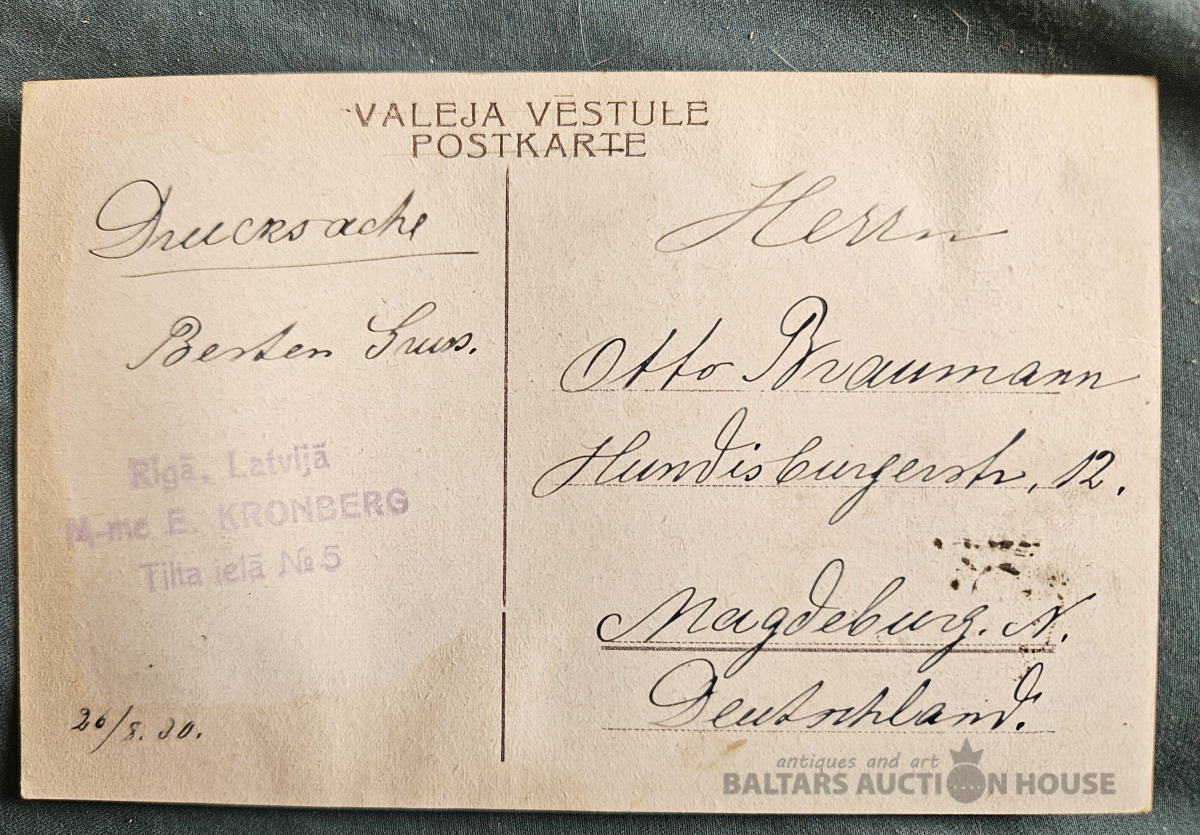 VAĻEJA VĒSTULE
POSTKARTE
Drucksache
Besten Gruss.
Rīgā, Latvijā
M-me E. KRONBERG
Tilta ielā № 5
26/8. 30.
Herrn
Otto Braumann
Hundisburgerstr. 12.
Magdeburg. N.
Deutschland.
antiques and art
BALTARS AUCTION HOUSE